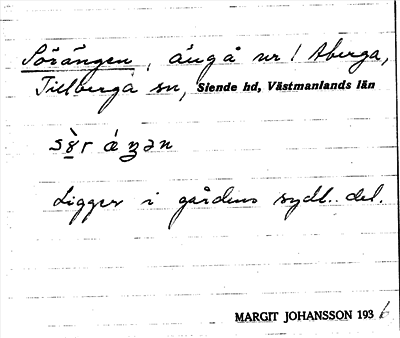 Sörängen, äng å nr 1 Åberga,
Tillberga sn, Siende hd, Västmanlands län
Ligger i gårdens sydl. del.
MARGIT JOHANSSON 1936